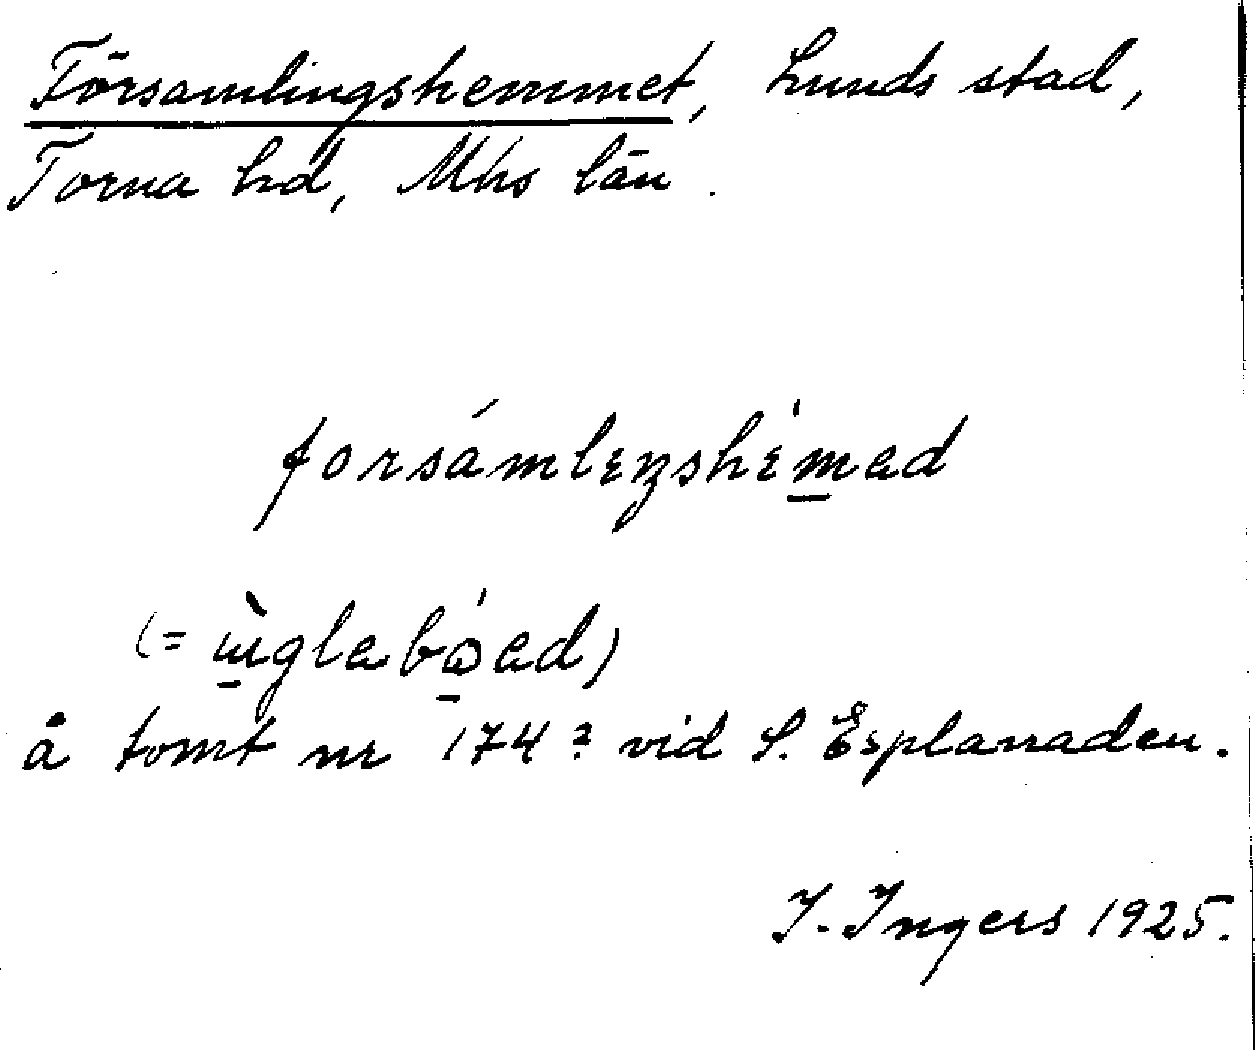 Församlingshemmet, Lunds stad,
Torna hd, Mhs län.
forsámlɪŋshɛ́m̱ad
(= ɯ̀glabǻad)
å tomt nr 174? vid S. Esplanaden.
I. Ingers 1925.